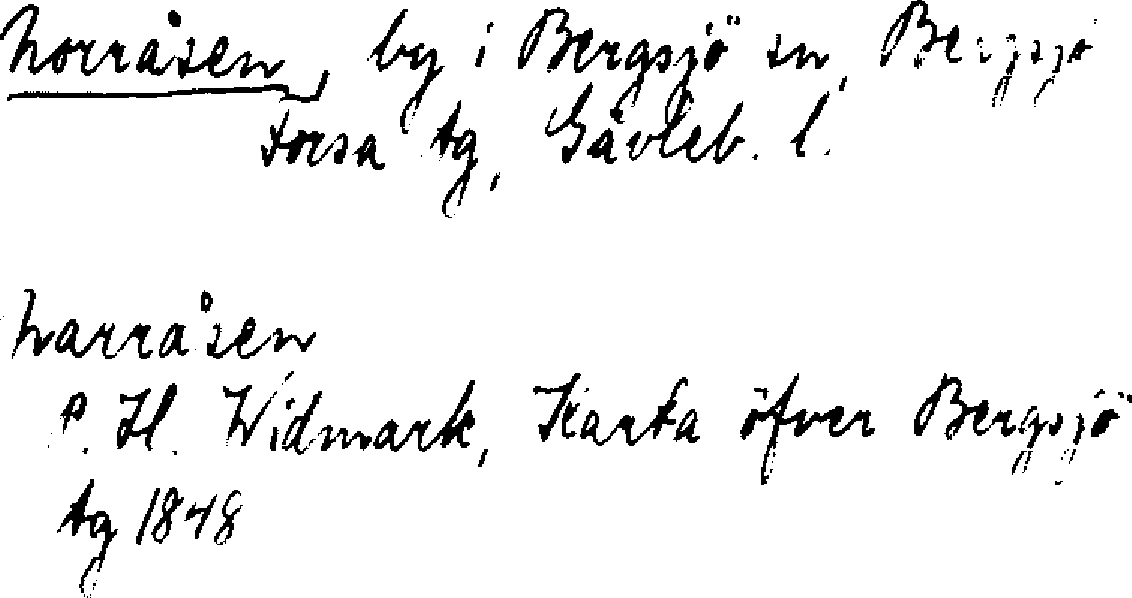 Norråsen, by i Bergsjö sn, Bergsjö
Forsa tg, Gävleb. l.
Narråsen
P. H. Widmark, Karta öfver Bergsjö
tg 1848